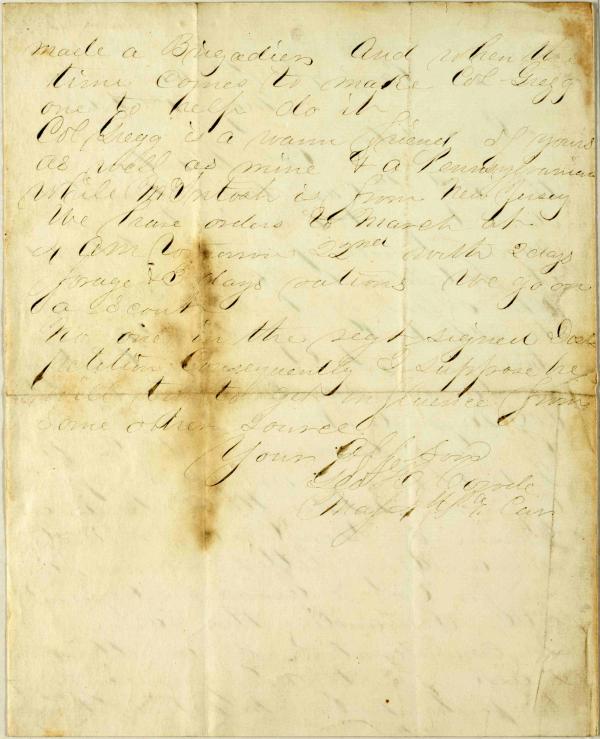 made a Brigadier And when the
time comes to make Col Gregg
one to help do it
Col Gregg is a warm friend of yours
as well as mine & a Pennsylvanian
while McIntosh is from New Jersey
We have orders to march at
AM tomorrow 22nd with 2 days
forage & 3 days rations We go on
a Scout
No one in the regt signed
petition Consequently I suppose he
will try to get influence from
some other source
Your Aff Son
Geo
Major Cav